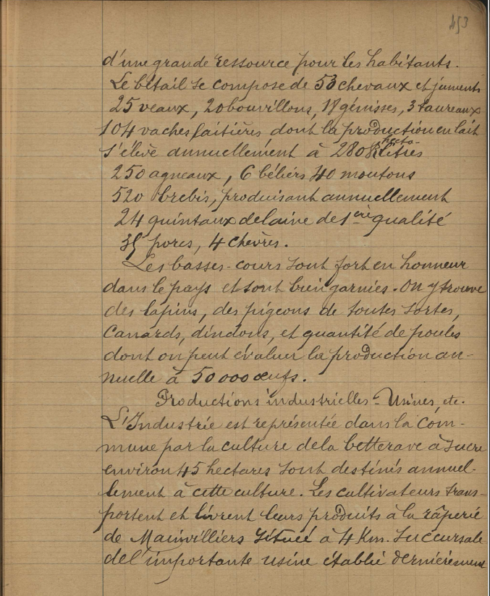 453
d'une grande ressource pour les habitants.
Le bétail se compose de 53 chevaux et juments
25 veaux, 20 bouvillons, 18 génisses, 3 taureaux
104 vaches laitières dont la production en lait
s'élève annuellement à 2808 litres
250 agneaux, 6 béliers 40 moutons
520 brebis, produisant annuellement
24 quintaux de laine de 1ère qualité
35 porcs, 4 chèvres.
Les basses-cours sont fort en honneur
dans le pays et sont bien garnies. On y trouve
des lapins, des pigeons de toutes sortes,
canards, dindons, et quantité de poules
dont on peut évaluer la production an-
nuelle à 50000 œufs.
Productions industrielles - Usines, etc.
L'Industrie est représentée dans la com-
mune par la culture de la betterave à sucre
environ 45 hectares sont destinés annuel-
lement à cette culture. Les cultivateurs trans-
portent et livrent leurs produits à la râperie
de Mainvilliers située à 4 Km. Succursale
de l'importante usine établie dernièrement